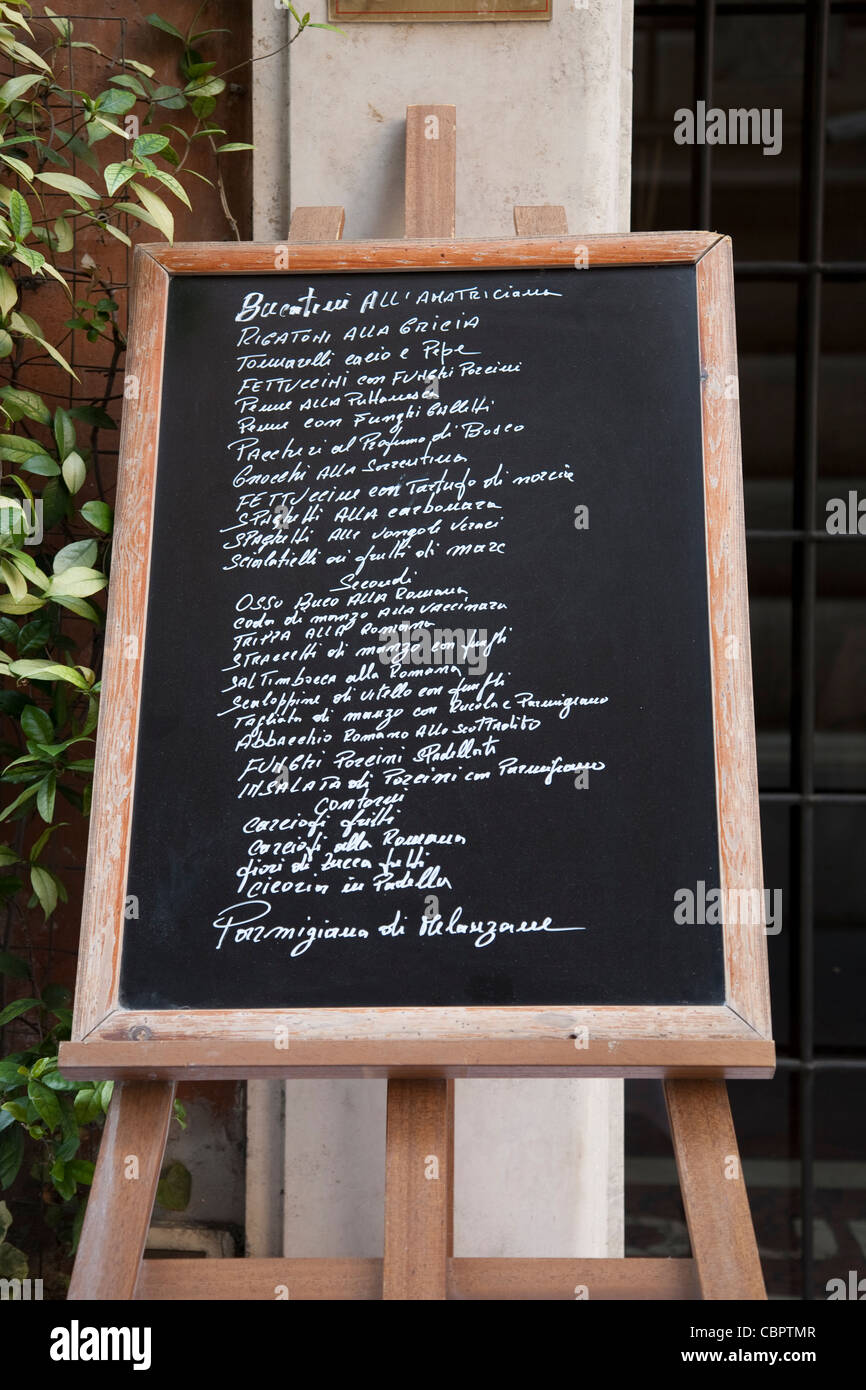 Bucatini ALL'AMATRICIANA
RIGATONI ALLA GRICIA
Tonnarelli cacio e Pepe
FETTUCCINI con FUNGHI Porcini
Penne ALLA Puttanesca
Penne con Funghi Galletti
Paccheri al Profumo di Bosco
Gnocchi ALLA Sorrentina
FETTUCCINE con Tartufo di norcia
SPAGHETTI ALLA carbonara
SPAGHETTI Alle vongole veraci
Scialatielli ai frutti di mare
Secondi
OSSO Buco ALLA Romana
Coda di manzo ALLA VACCINARA
TRIPPA ALLA Romana
STRACCETTI di manzo con funghi
SALTimbocca alla Romana
Scaloppine di vitello con funghi
Tagliata di manzo con Rucola e Parmigiano
ABBACCHIO Romano Allo Scottadito
FUNGHI Porcini SPadellati
INSALATA di Porcini con Parmigiano
Contorni
Carciofi fritti
Carciofi alla Romana
fiori di zucca fritti
Cicoria in Padella
Parmigiana di Melanzane
alamy
Image ID: CBPTMR
www.alamy.com